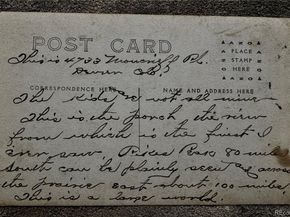 POST CARD
PLACE
STAMP
HERE
This is 4733 Moncrieff Pl.
Denver Colo.
CORRESPONDENCE HERE
NAME AND ADDRESS HERE
The Kids are not all mine
This is the porch the view
from which is the finest I
ever saw. Pikes Peak 80 miles
south can be plainly seen and across
the prairie east about 100 miles.
This is a large world.